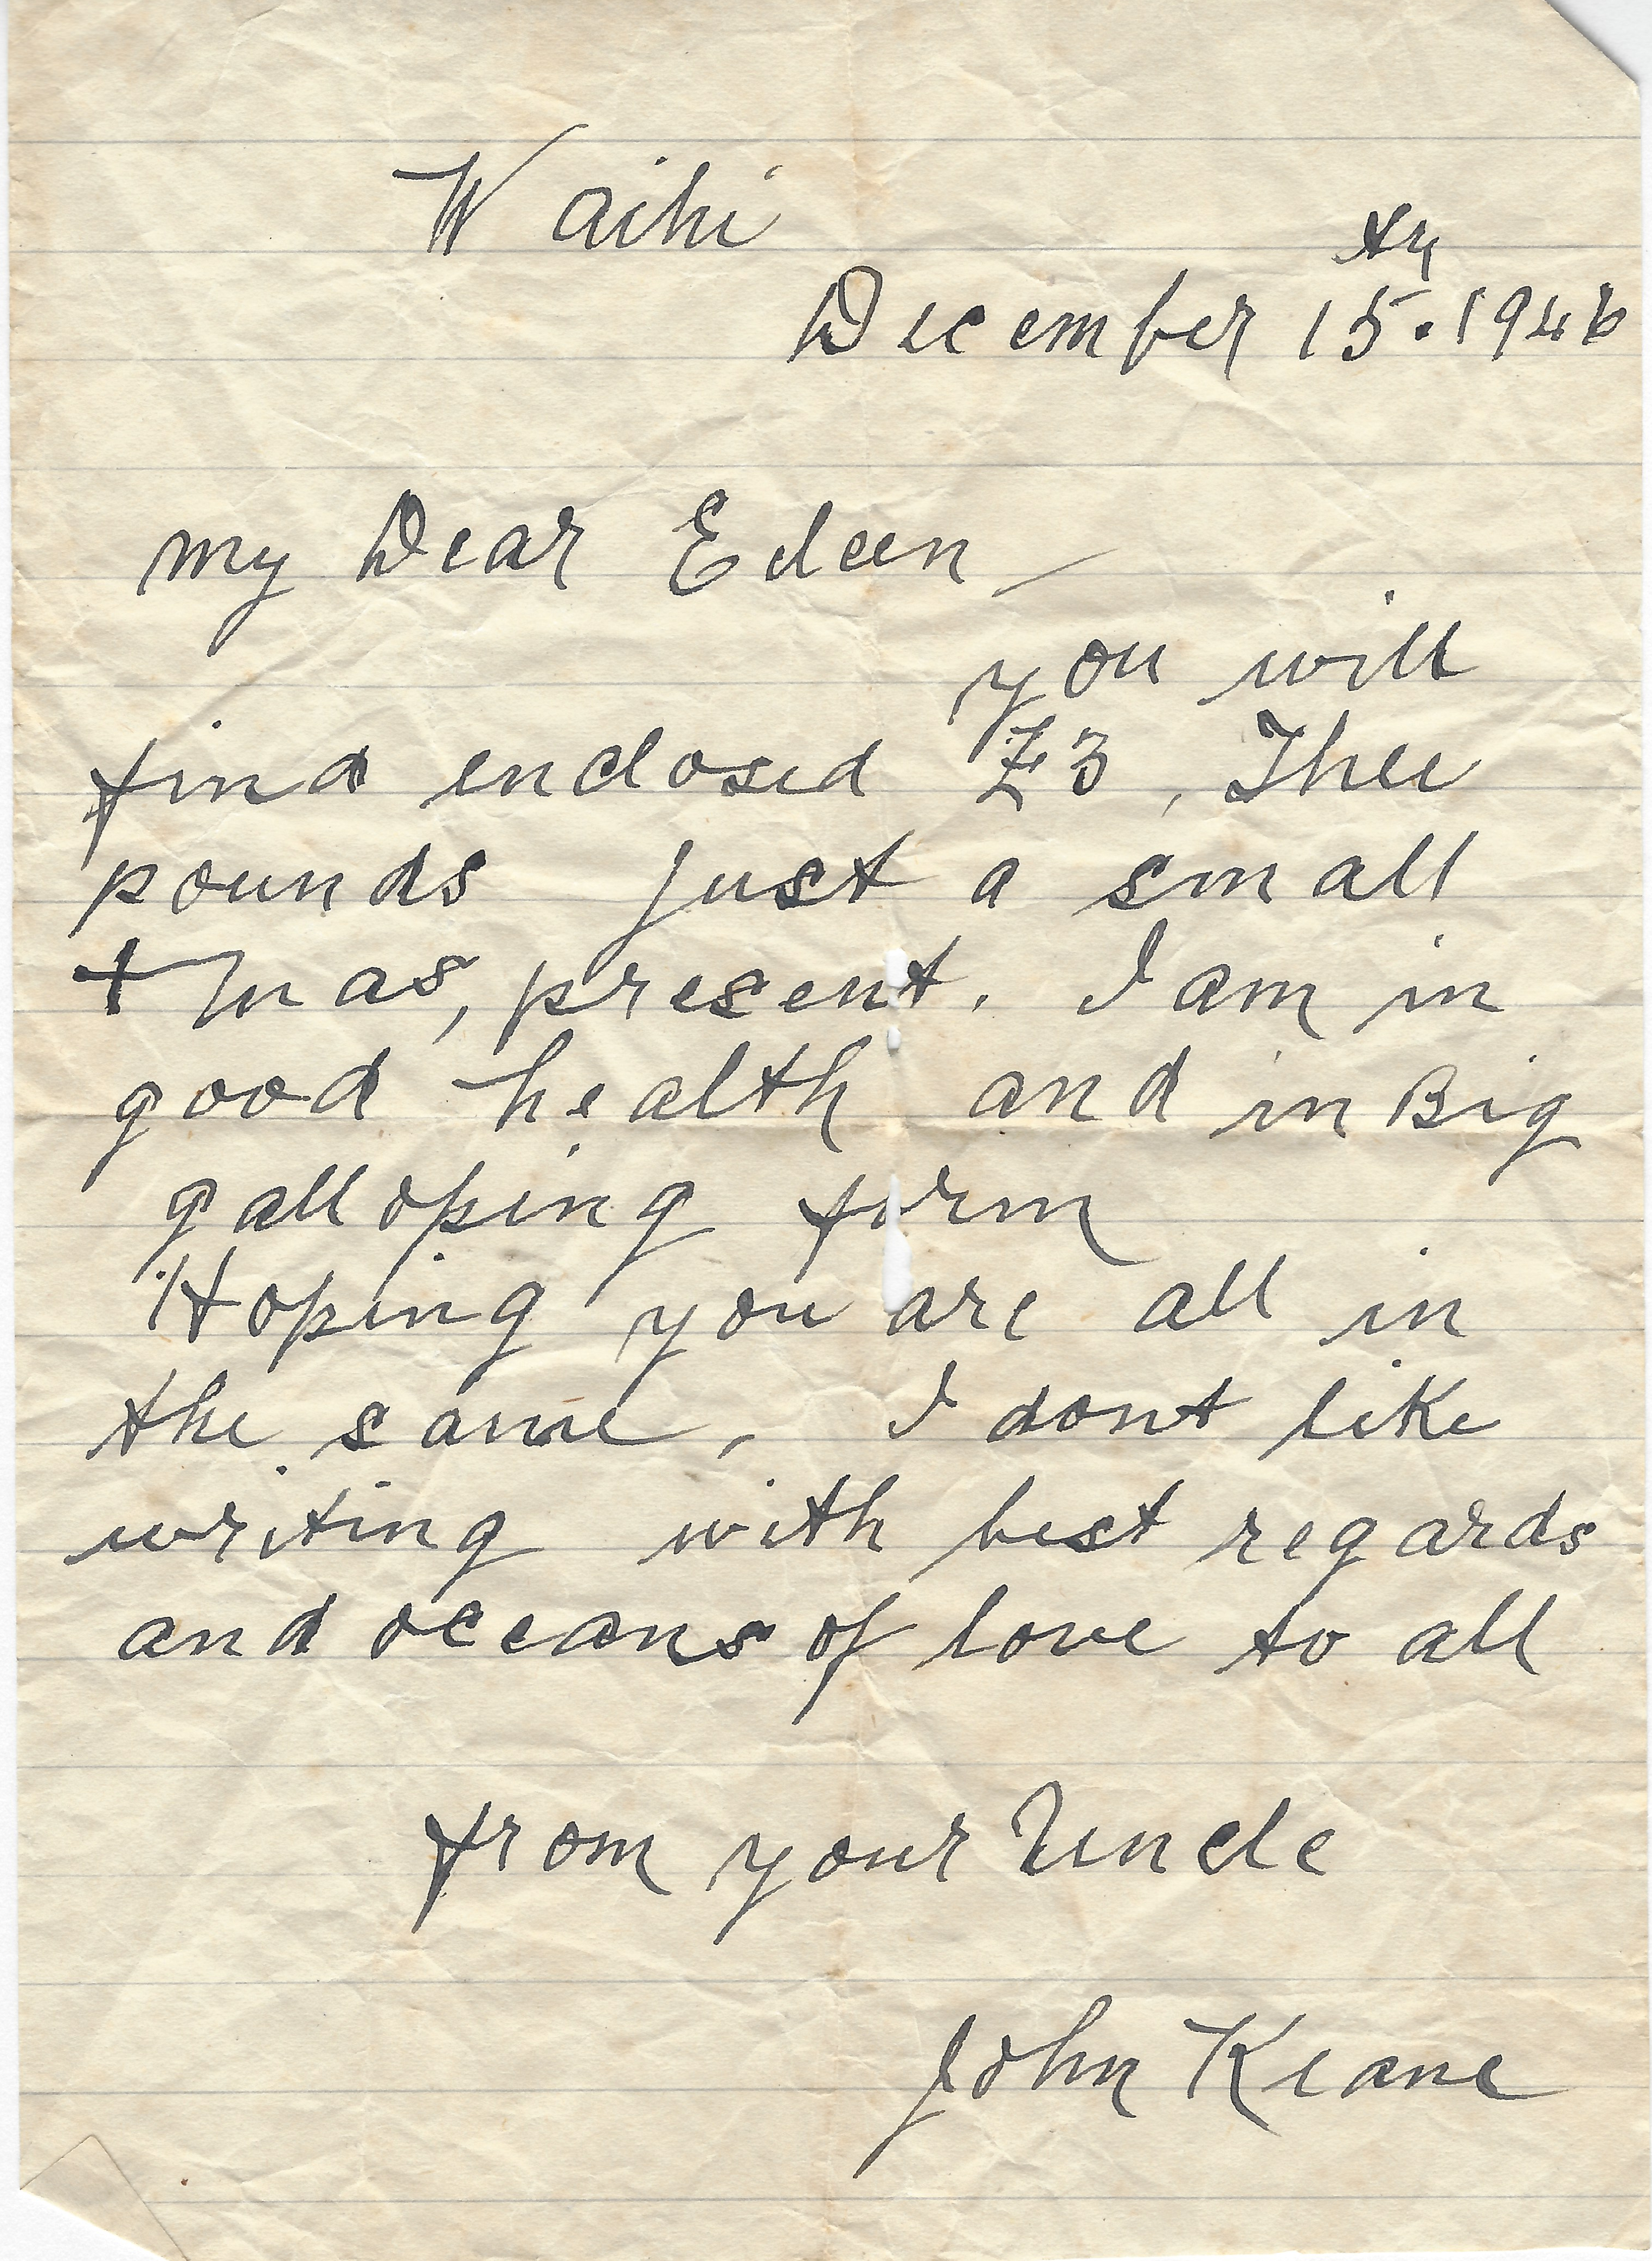 Waihi
December 15th. 1946
my Dear Eileen
you will
find enclosed £3, Three
pounds just a small
Xmas, present. I am in
good health and in Big
galloping form
Hoping you are all in
the same, I dont like
writing with best regards
and oceans of love to all
from your Uncle
John Keane